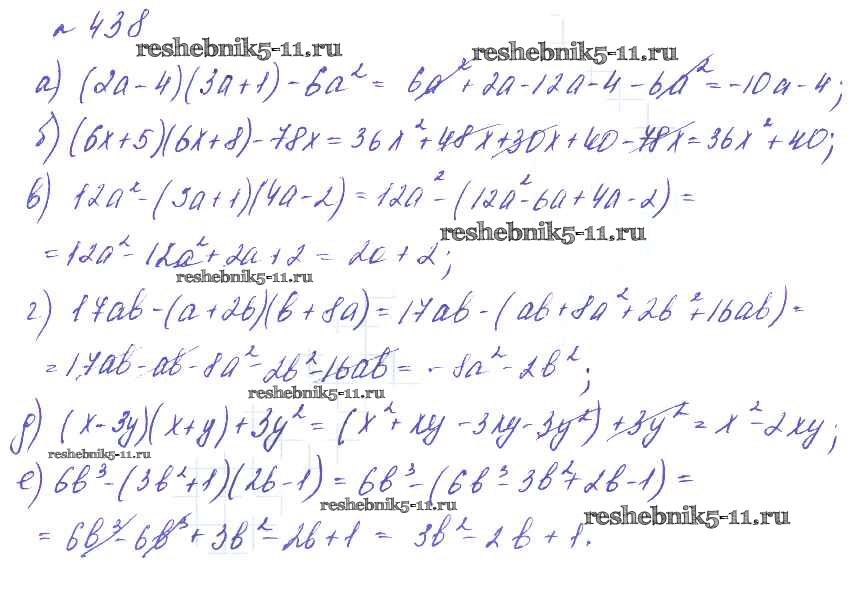 № 438
reshebnik5-11.ru reshebnik5-11.ru
а) (2a-4)(3a+1)-6a² = 6a²+2a-12a-4-6a²=-10a-4;
б) (6x+5)(6x+8)-78x=36x²+48x+30x+40-78x=36x²+40;
в) 12a²-(3a+1)(4a-2)=12a²-(12a²-6a+4a-2)=
reshebnik5-11.ru
=12a²-12a²+2a+2= 2a+2;
reshebnik5-11.ru
г) 17ab-(a+2b)(b+8a)=17ab-(ab+8a²+2b²+16ab)=
=17ab-ab-8a²-2b²-16ab=-8a²-2b²;
reshebnik5-11.ru
д) (x-3y)(x+y)+3y²=(x²+xy-3xy-3y²)+3y²=x²-2xy;
reshebnik5-11.ru
е) 6b³-(3b²+1)(2b-1)=6b³-(6b³-3b²+2b-1)=
reshebnik5-11.ru
reshebnik5-11.ru
= 6b³-6b³+3b²-2b+1 = 3b²-2b+1.